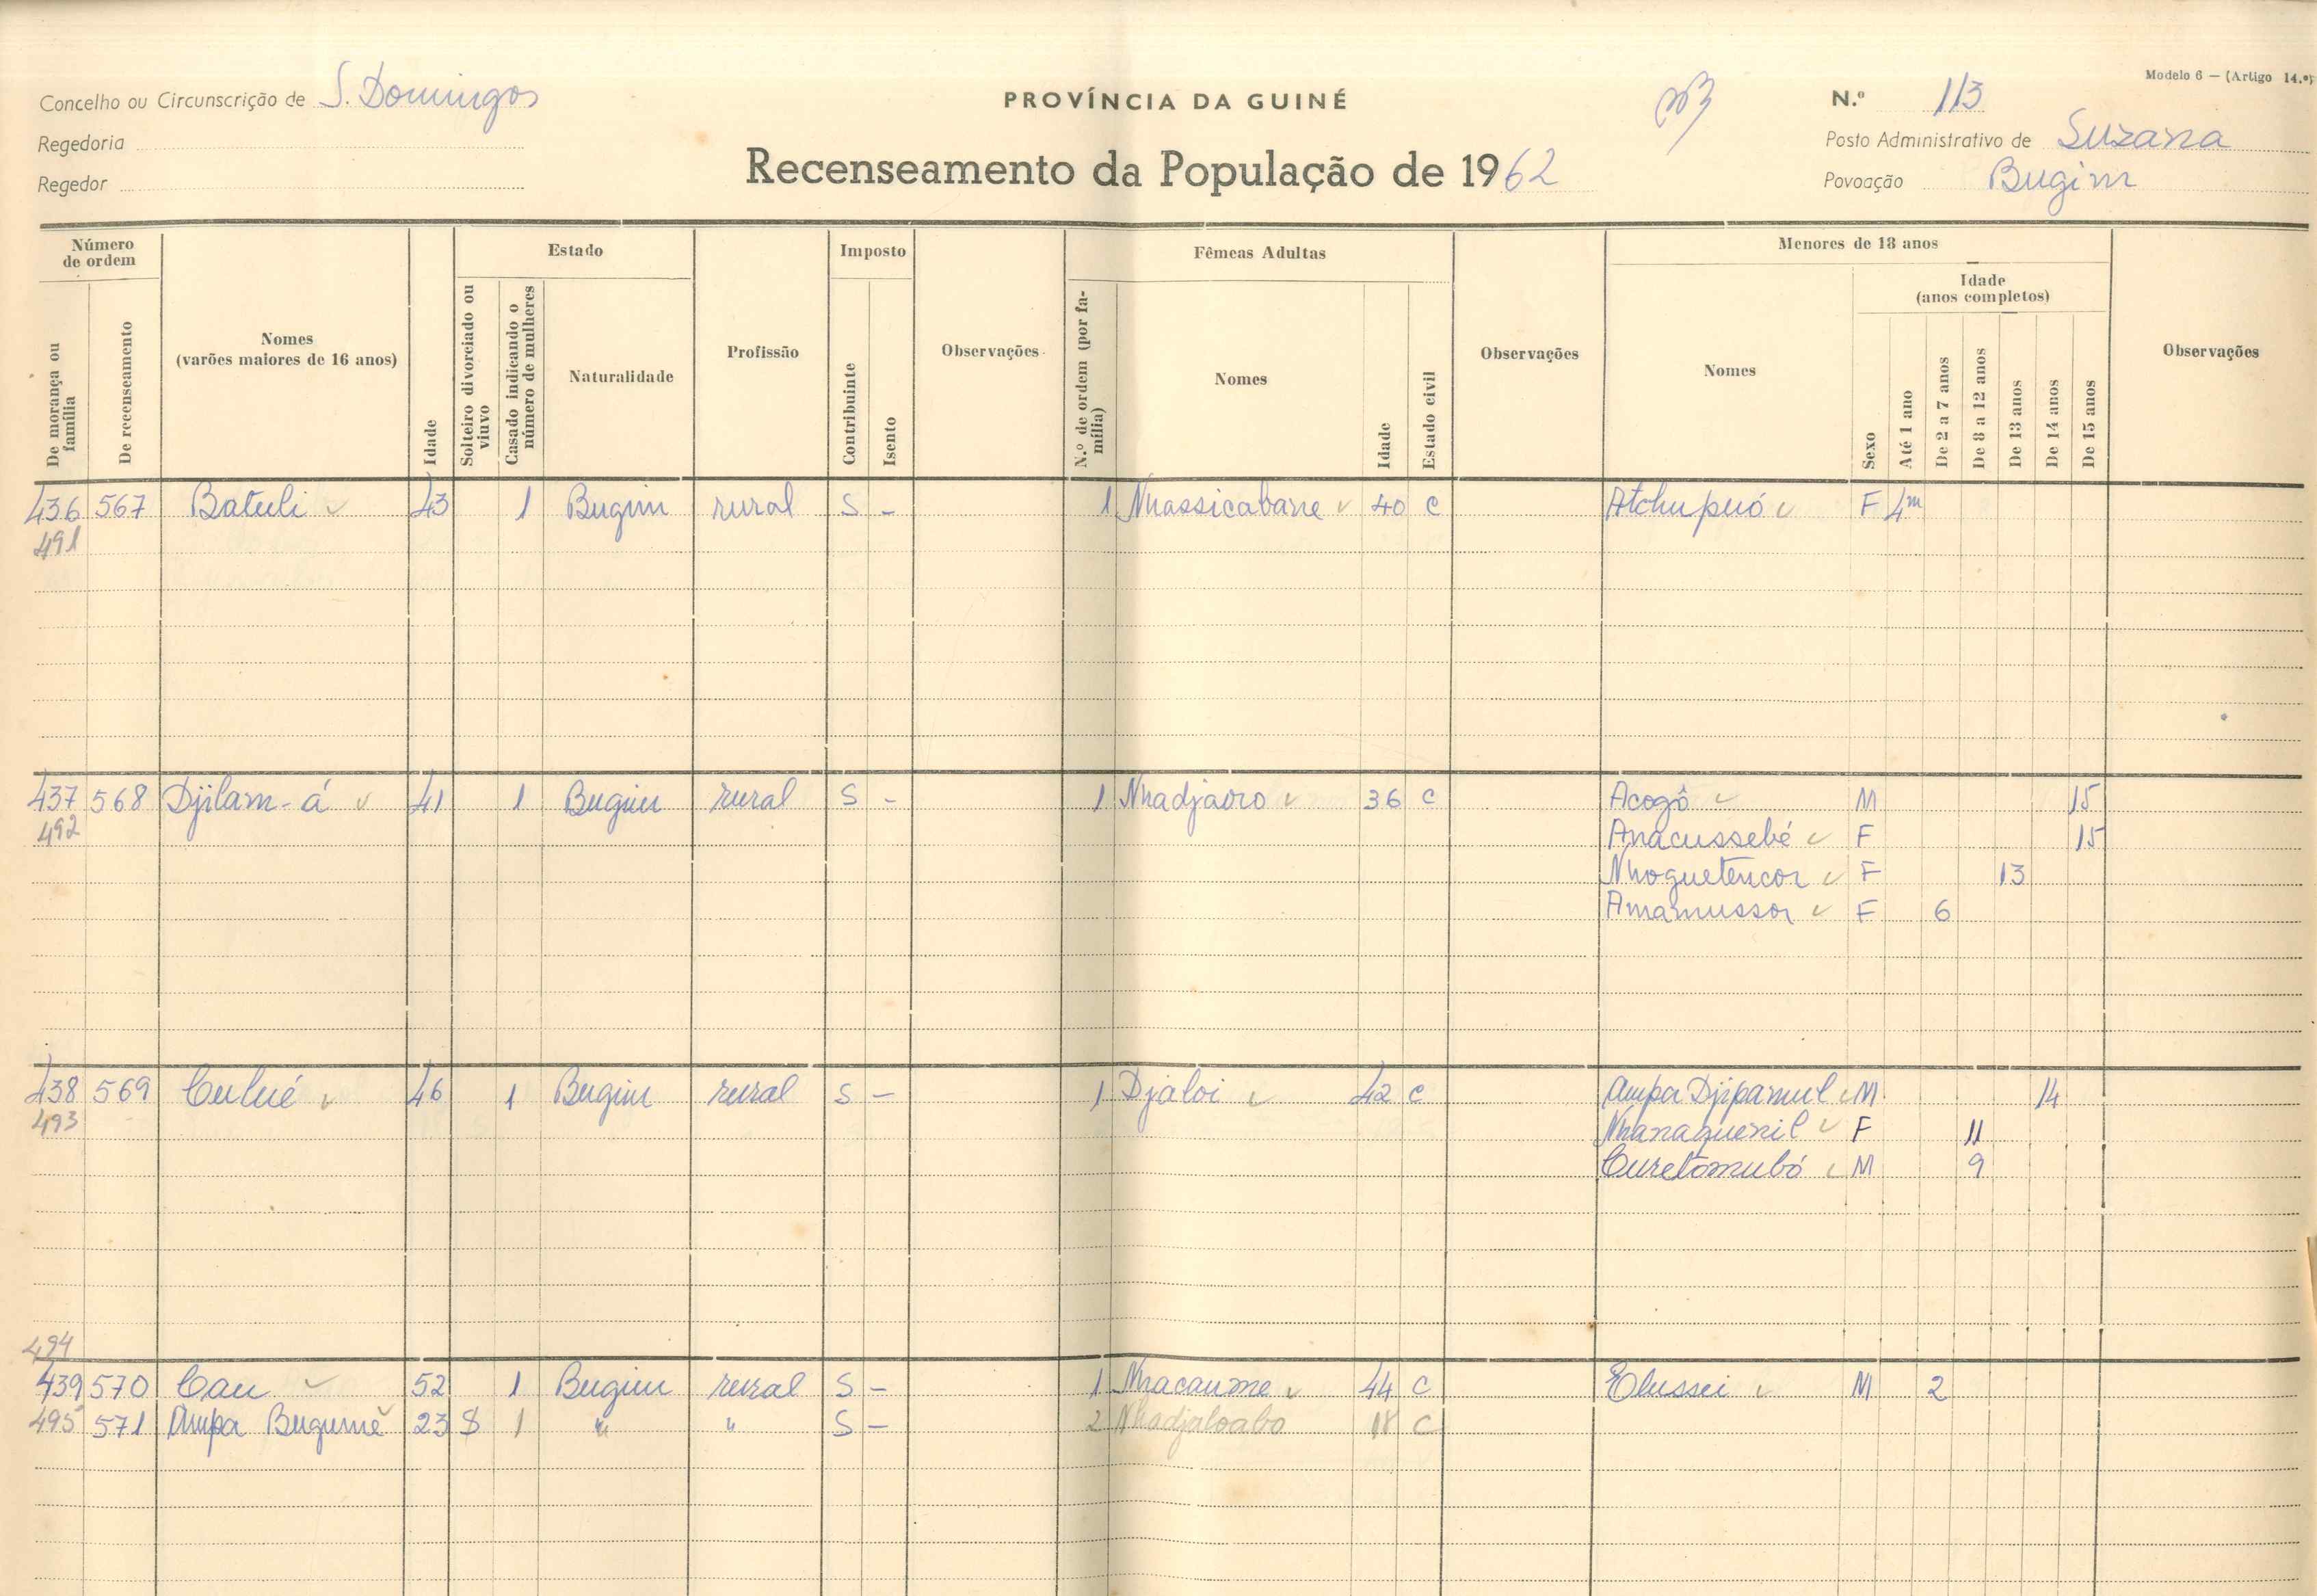 Modelo 6 — (Artigo 14.º)
Concelho ou Circunscrição de S. Domingos
PROVÍNCIA DA GUINÉ
N.º 113
Regedoria
Posto Administrativo de Suzana
Regedor
Recenseamento da População de 1962
Povoação Bugim
Número de ordem
Estado
Imposto
Fêmeas Adultas
Menores de 18 anos
Idade (anos completos)
De morança ou família
De recenseamento
Nomes (varões maiores de 16 anos)
Idade
Solteiro divorciado ou viuvo
Casado indicando o número de mulheres
Naturalidade
Profissão
Contribuinte
Isento
Observações
N.º de ordem (por família)
Nomes
Idade
Estado civil
Observações
Nomes
Sexo
Até 1 ano
De 2 a 7 anos
De 8 a 12 anos
De 13 anos
De 14 anos
De 15 anos
Observações
436 567 Batuli 43 1 Bugim rural S - 1 Nhassicabane 40 C Atchupuó F 4m
491
437 568 Djilam-á 41 1 Bugim rural S - 1 Nhadjaoro 36 C Acogô M 15
492 Anacussebé F 15
Nhoguetencor F 13
Amamussor F 6
438 569 Culué 46 1 Bugim rural S - 1 Djaloi 42 C Ampa Djipamul M 14
493 Nhanaguenil F 11
Curetomubó M 9
494
439 570 Cau 52 1 Bugim rural S - 1 Nhacaume 44 C Elussei M 2
495 571 Ampa Bugumé 23 S 1 " " S - 2 Nhadjaloabo 18 C